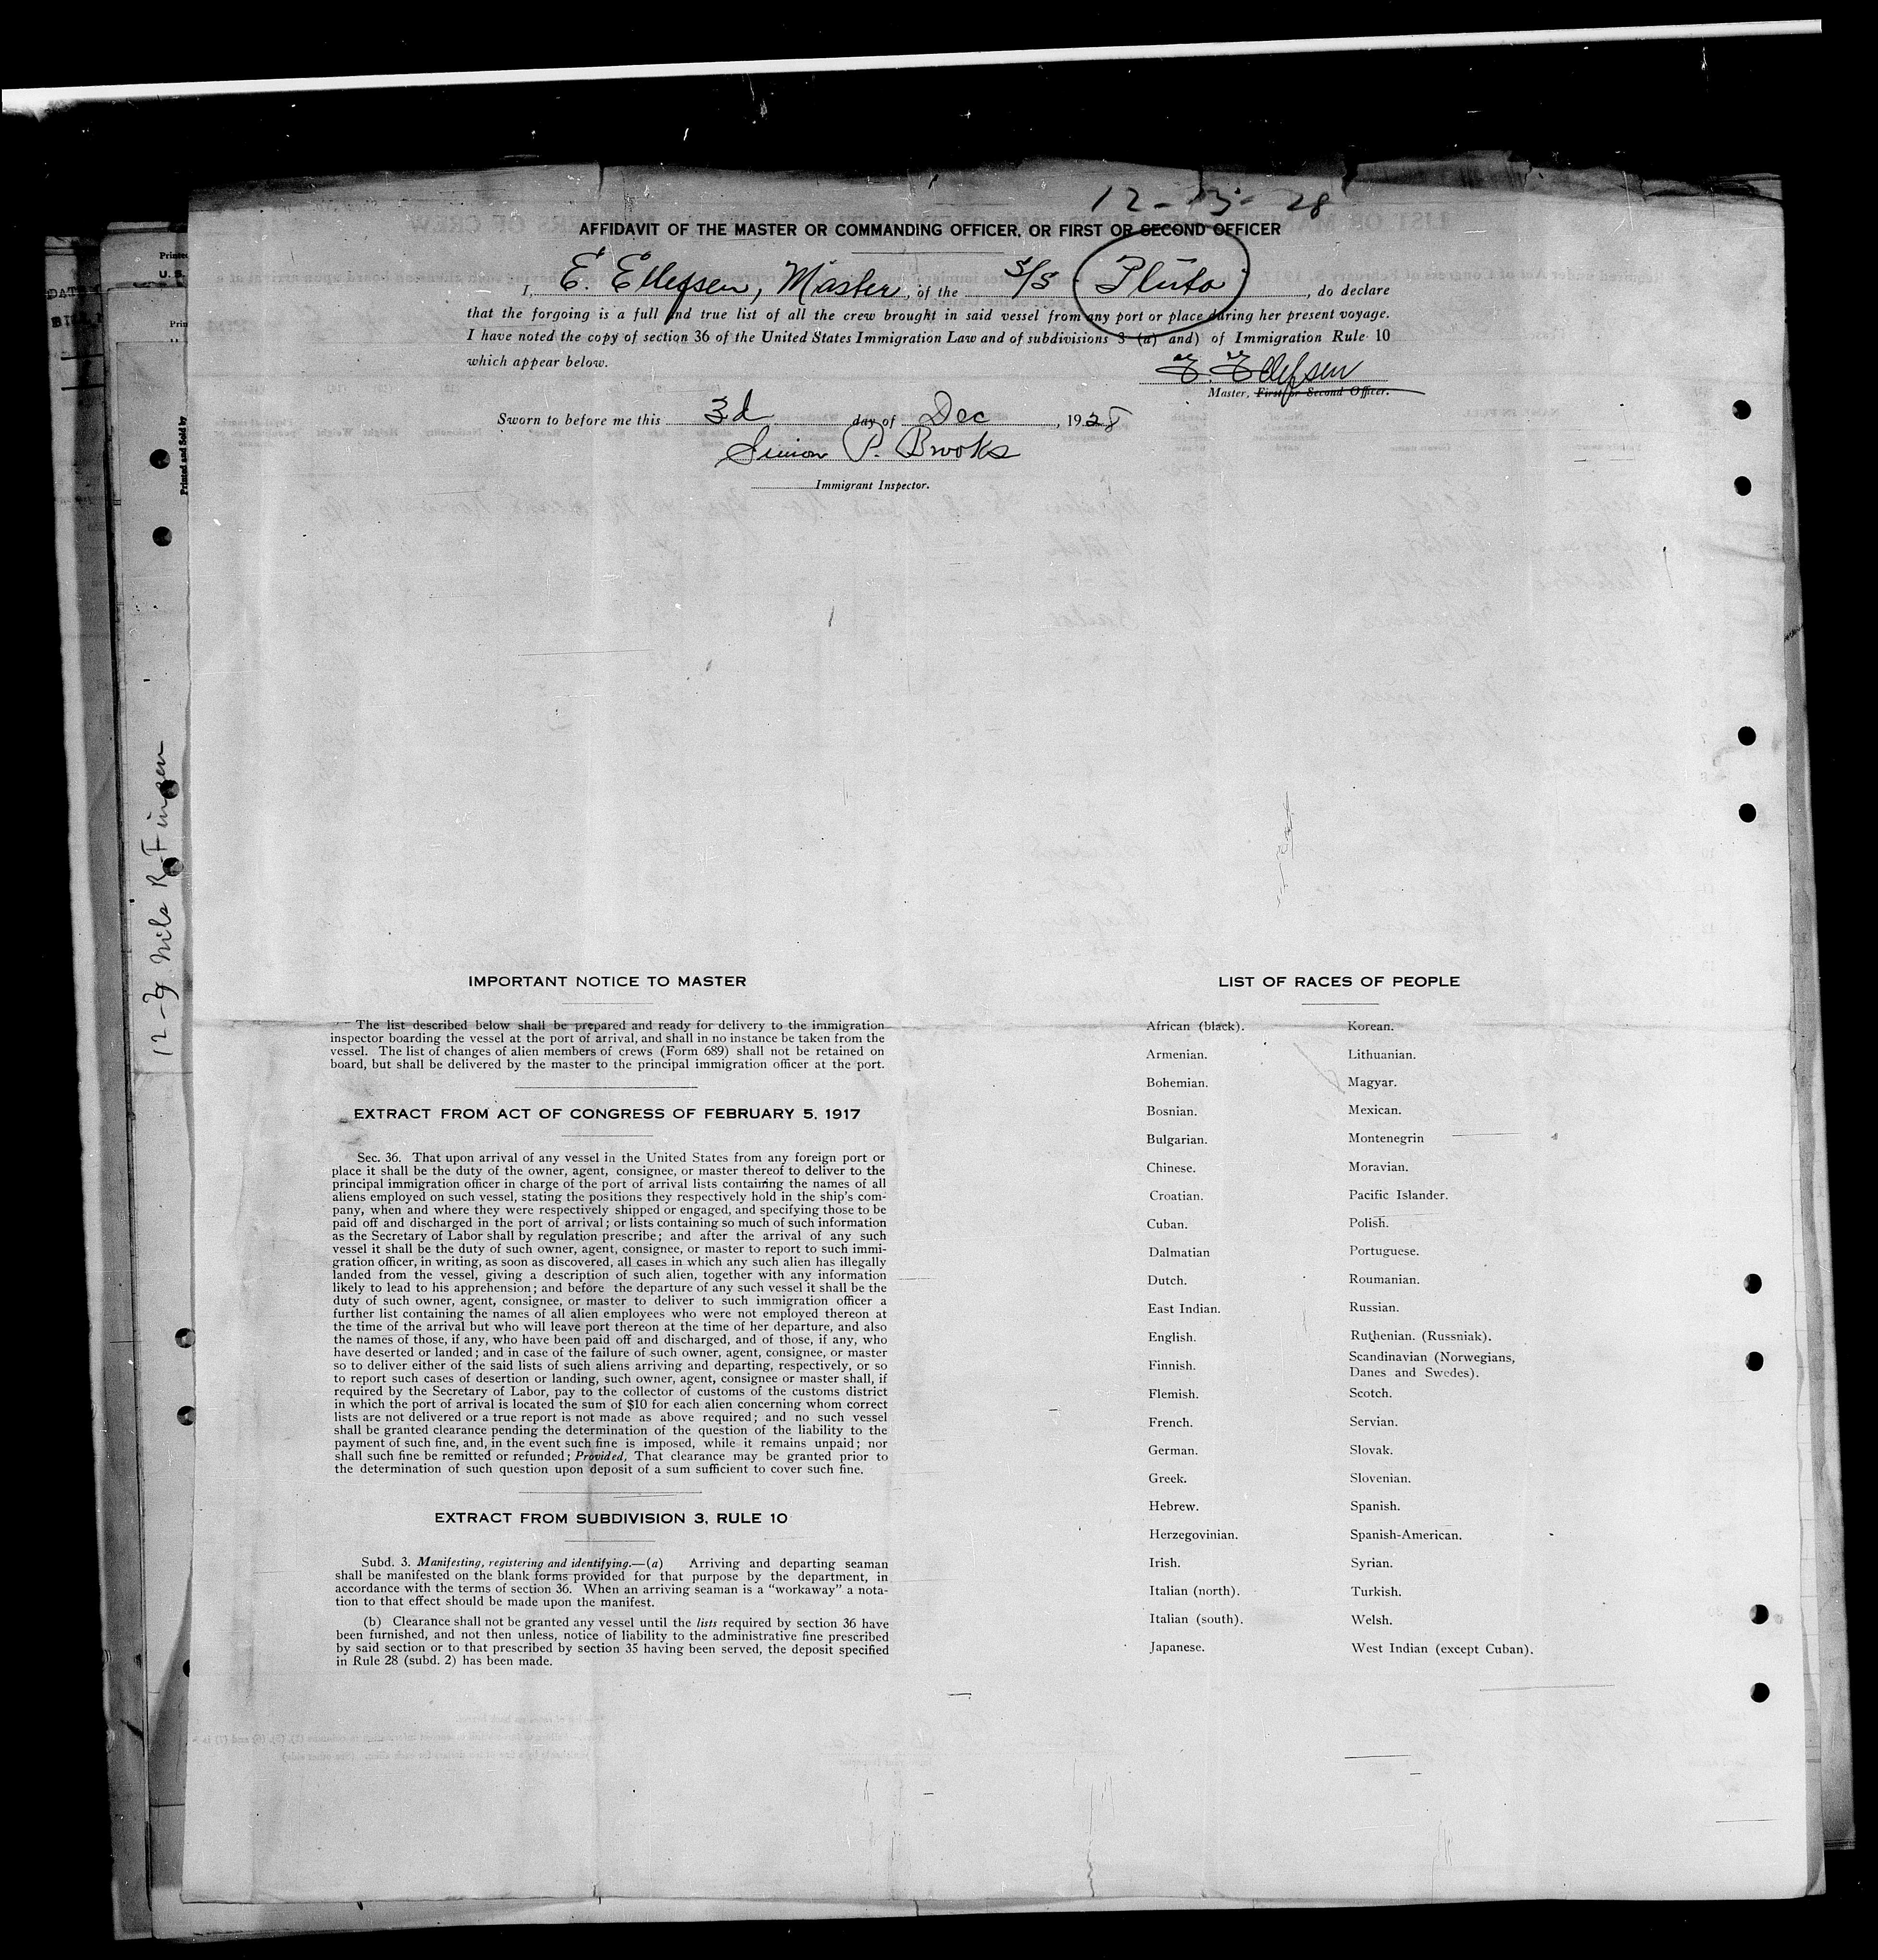 12-3-28
AFFIDAVIT OF THE MASTER OR COMMANDING OFFICER, OR FIRST OR SECOND OFFICER
I, E. Ellefsen, Master, of the S/S Pluto, do declare
that the forgoing is a full and true list of all the crew brought in said vessel from any port or place during her present voyage.
I have noted the copy of section 36 of the United States Immigration Law and of subdivisions 3 (a) and) of Immigration Rule 10
which appear below.
E. Ellefsen
Master, First or Second Officer.
Sworn to before me this 3d day of Dec, 1928
Simon P. Brooks
Immigrant Inspector.
Printed and Sold by
12-3 Nils R Finsen
IMPORTANT NOTICE TO MASTER
The list described below shall be prepared and ready for delivery to the immigration
inspector boarding the vessel at the port of arrival, and shall in no instance be taken from the
vessel. The list of changes of alien members of crews (Form 689) shall not be retained on
board, but shall be delivered by the master to the principal immigration officer at the port.
EXTRACT FROM ACT OF CONGRESS OF FEBRUARY 5, 1917
Sec. 36. That upon arrival of any vessel in the United States from any foreign port or
place it shall be the duty of the owner, agent, consignee, or master thereof to deliver to the
principal immigration officer in charge of the port of arrival lists containing the names of all
aliens employed on such vessel, stating the positions they respectively hold in the ship's com-
pany, when and where they were respectively shipped or engaged, and specifying those to be
paid off and discharged in the port of arrival; or lists containing so much of such information
as the Secretary of Labor shall by regulation prescribe; and after the arrival of any such
vessel it shall be the duty of such owner, agent, consignee, or master to report to such immi-
gration officer, in writing, as soon as discovered, all cases in which any such alien has illegally
landed from the vessel, giving a description of such alien, together with any information
likely to lead to his apprehension; and before the departure of any such vessel it shall be the
duty of such owner, agent, consignee, or master to deliver to such immigration officer a
further list containing the names of all alien employees who were not employed thereon at
the time of the arrival but who will leave port thereon at the time of her departure, and also
the names of those, if any, who have been paid off and discharged, and of those, if any, who
have deserted or landed; and in case of the failure of such owner, agent, consignee, or master
so to deliver either of the said lists of such aliens arriving and departing, respectively, or so
to report such cases of desertion or landing, such owner, agent, consignee or master shall, if
required by the Secretary of Labor, pay to the collector of customs of the customs district
in which the port of arrival is located the sum of $10 for each alien concerning whom correct
lists are not delivered or a true report is not made as above required; and no such vessel
shall be granted clearance pending the determination of the question of the liability to the
payment of such fine, and, in the event such fine is imposed, while it remains unpaid; nor
shall such fine be remitted or refunded; Provided, That clearance may be granted prior to
the determination of such question upon deposit of a sum sufficient to cover such fine.
EXTRACT FROM SUBDIVISION 3, RULE 10
Subd. 3. Manifesting, registering and identifying.—(a) Arriving and departing seaman
shall be manifested on the blank forms provided for that purpose by the department, in
accordance with the terms of section 36. When an arriving seaman is a "workaway" a nota-
tion to that effect should be made upon the manifest.
(b) Clearance shall not be granted any vessel until the lists required by section 36 have
been furnished, and not then unless, notice of liability to the administrative fine prescribed
by said section or to that prescribed by section 35 having been served, the deposit specified
in Rule 28 (subd. 2) has been made.
LIST OF RACES OF PEOPLE
African (black).
Armenian.
Bohemian.
Bosnian.
Bulgarian.
Chinese.
Croatian.
Cuban.
Dalmatian
Dutch.
East Indian.
English.
Finnish.
Flemish.
French.
German.
Greek.
Hebrew.
Herzegovinian.
Irish.
Italian (north).
Italian (south).
Japanese.
Korean.
Lithuanian.
Magyar.
Mexican.
Montenegrin
Moravian.
Pacific Islander.
Polish.
Portuguese.
Roumanian.
Russian.
Ruthenian. (Russniak).
Scandinavian (Norwegians,
Danes and Swedes).
Scotch.
Servian.
Slovak.
Slovenian.
Spanish.
Spanish-American.
Syrian.
Turkish.
Welsh.
West Indian (except Cuban).